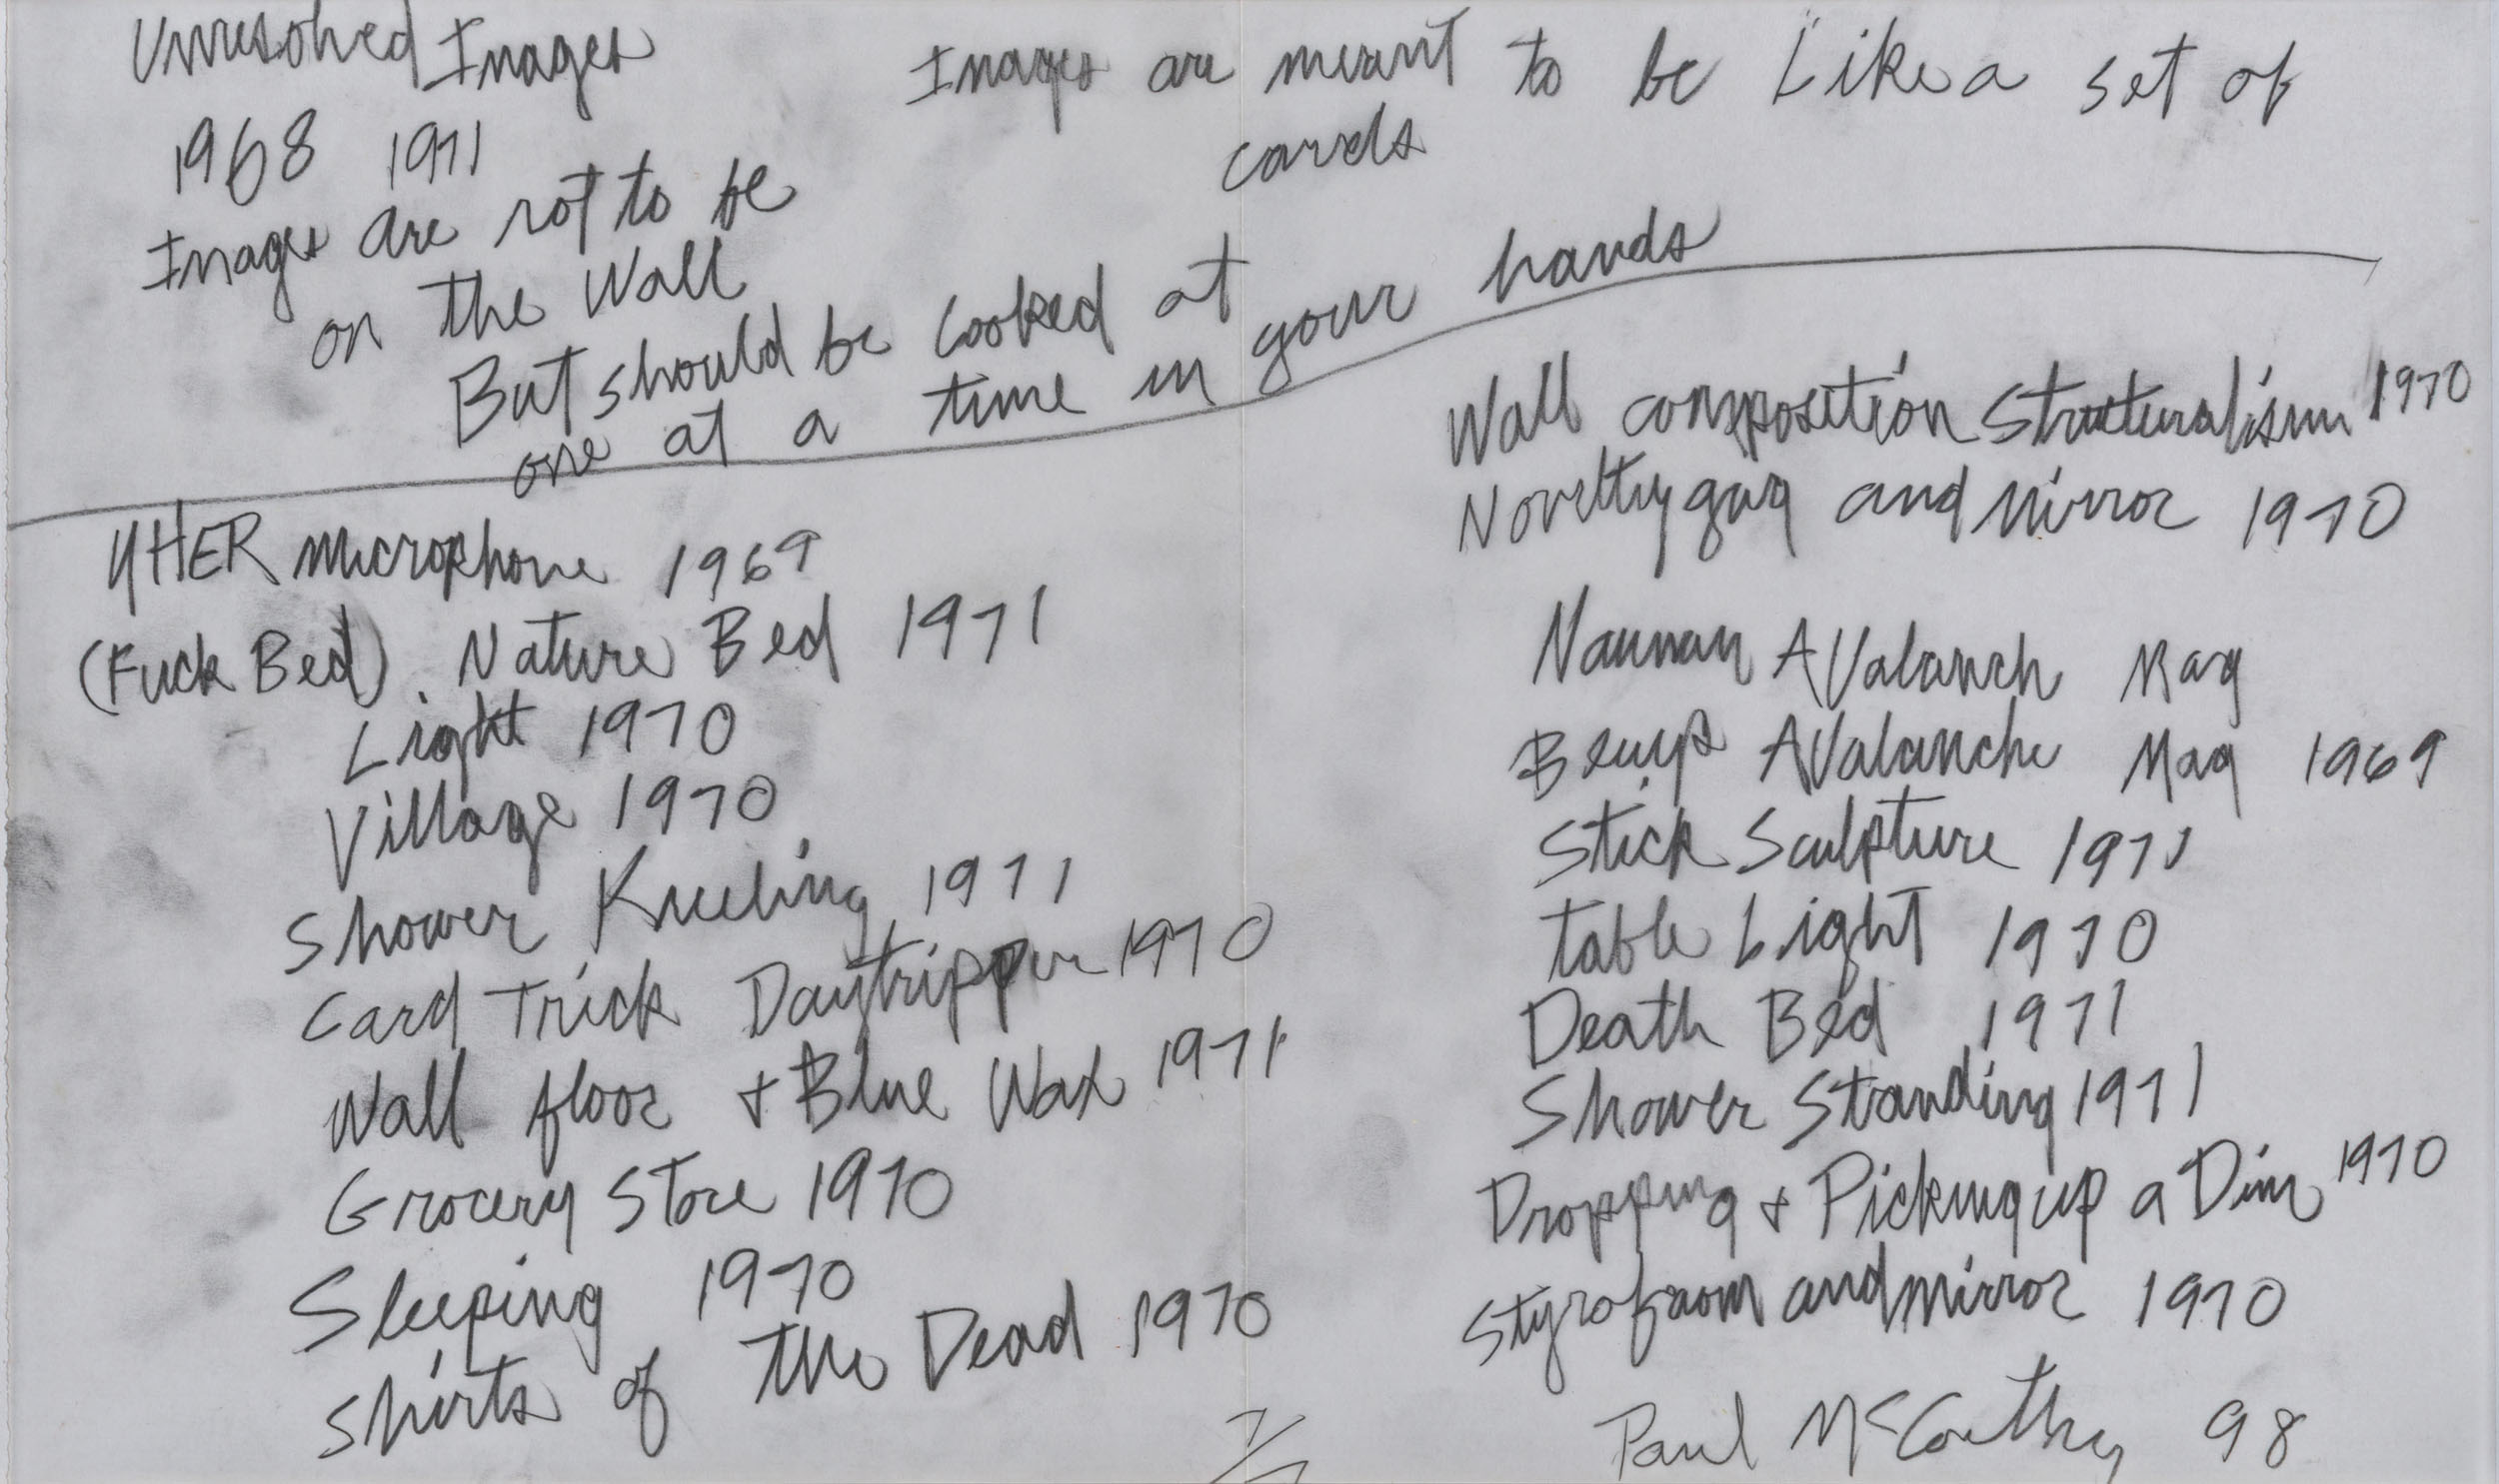 Unresolved Images
1968 1971
Images are not to be
on the Wall
But should be looked at
one at a time in your hands
Images are meant to be Like a set of
cards
UHER microphone 1969
(Fuck Bed). Nature Bed 1971
Light 1970
Village 1970
Shower Kneeling 1971
Card Trick Daytripper 1970
Wall floor + Blue Wax 1971
Grocery Store 1970
Sleeping 1970
Shirts of the Dead 1970
Wall composition Structuralism 1970
Novelty gag and Mirror 1970
Nauman AValanch Mag
Beuys AValanche Mag 1969
Stick Sculpture 1971
table Light 1970
Death Bed 1971
Shower Standing 1971
Dropping + Picking up a Dim 1970
Styrofaom and mirror 1970
Paul McCarthy 98